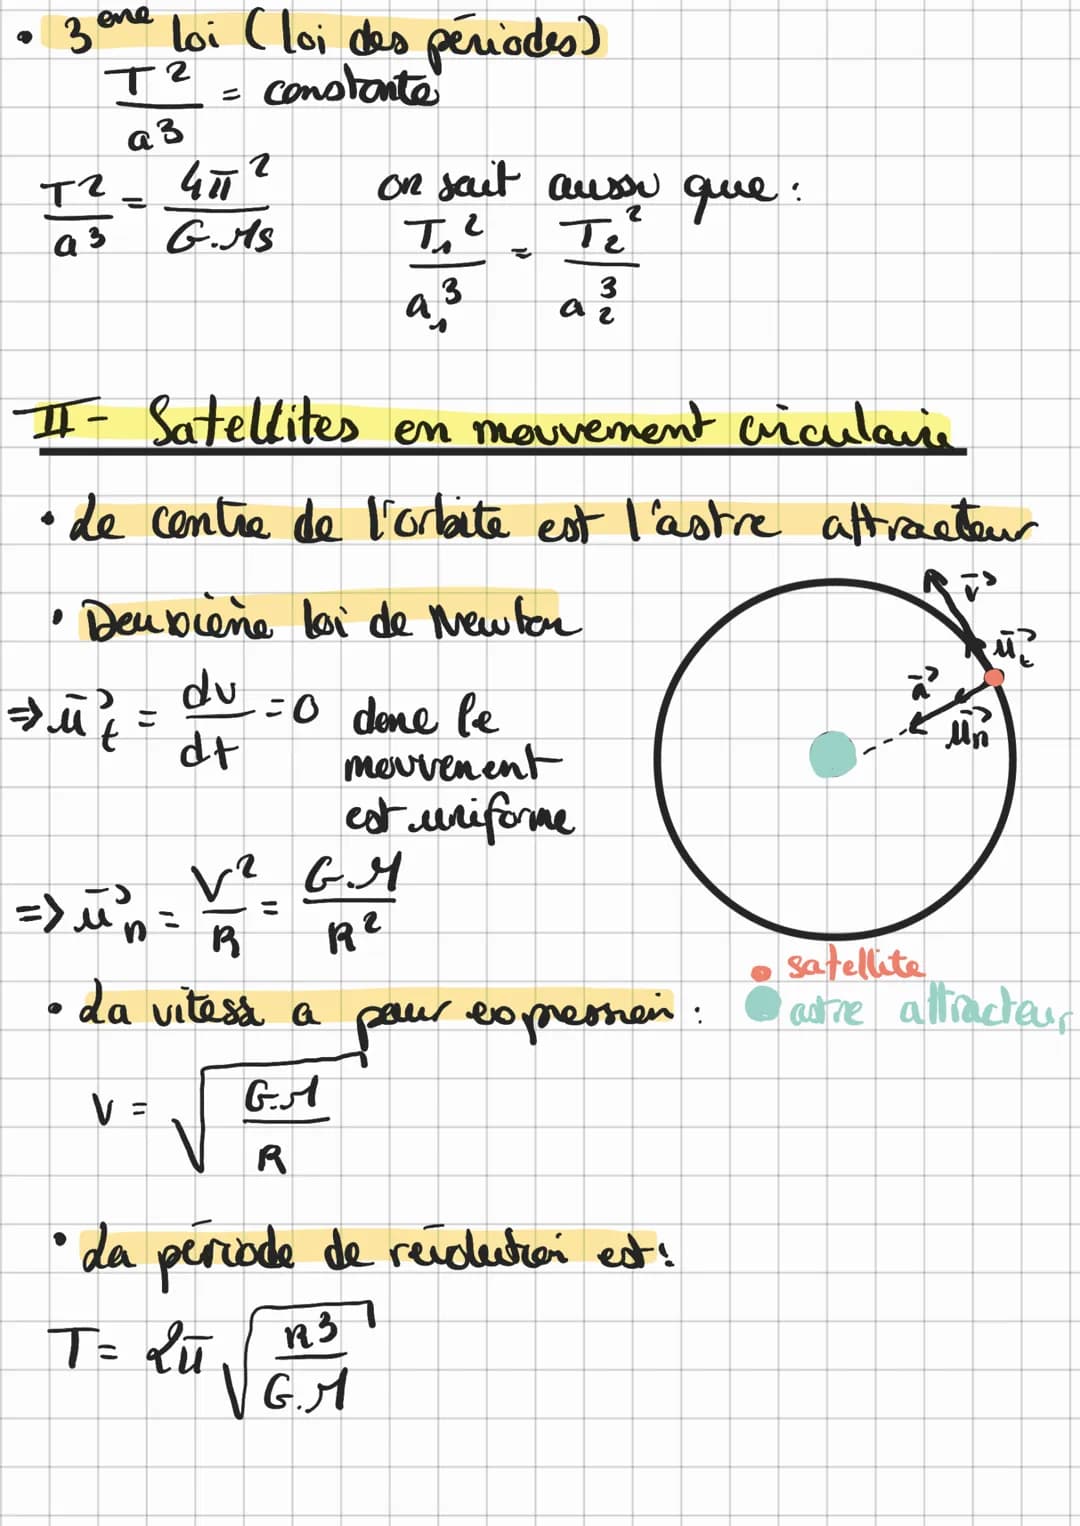 • 3ème loi (loi des périodes)
T²/a³ = constante
T²/a³ = 4π²/G.Ms on sait aussi que :
T₁²/a₁³ = T₂²/a₂³
II - Satellites en mouvement circulaire
• Le centre de l'orbite est l'astre attracteur
• Deuxième loi de Newton
⇒ u⃗t = dv/dt = 0 donc le
mouvement
est uniforme
v⃗
u⃗t
a⃗
u⃗n
⇒ u⃗n = V²/R = G.M/R²
• satellite
astre attracteur
• La vitesse a pour expression :
V = √(G.M/R)
• La période de révolution est :
T = 2π √(R³/G.M)